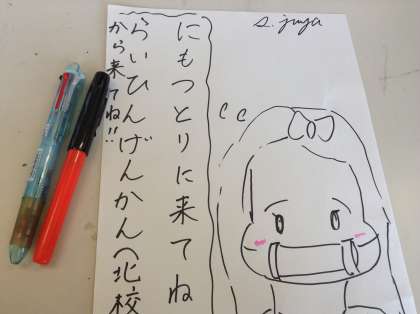 にもつとりに来てね
らいひんげんかん(北校
から来てね!!